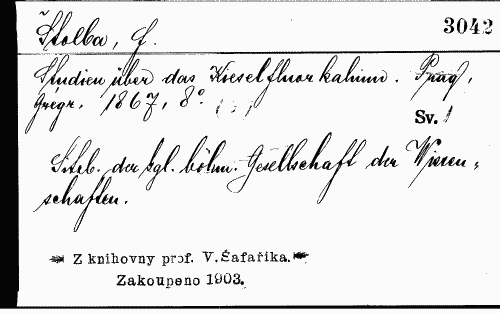 Štolba, F.
3042
Studien über das Kieselfluorkalium. Prag,
Grégr. 1867, 8°.
Sv. 1
Sitzb. der kgl. böhm. Gesellschaft der Wissen-
schaften.
Z knihovny prof. V. Šafaříka.
Zakoupeno 1903.